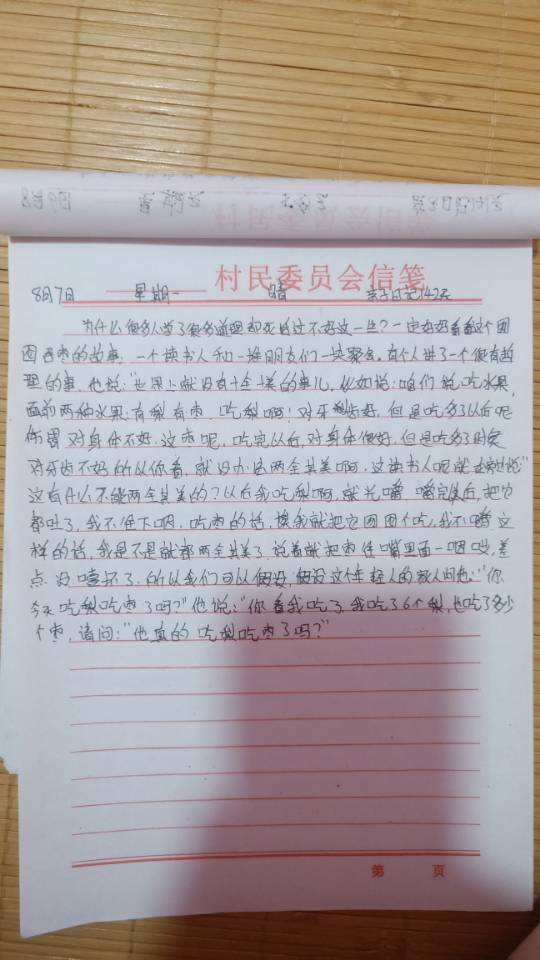 村民委员会信笺
8月7日 星期一 晴 亲子日记142天
为什么很多人学了很多道理却依然过不好这一生?一定好好看看这个囫
囵吞枣的故事。一个读书人和一堆朋友们一块聚会,有个人讲了一个很有哲
理的事,他说:"世界上就没有十全十美的事儿,比如说:咱们说吃水果,
面前两种水果有梨有枣,吃梨啊!对牙齿好,但是吃多了以后呢
伤胃对身体不好。这枣呢,吃完以后,对身体很好,但是吃多了时候
对牙齿不好所以你看,就没办法两全其美啊,这读书人呢就说"
这有什么不能两全其美的?以后我吃梨啊,就光嚼,嚼完以后,把它
都吐了,我不往下咽,吃枣的话,我就把它囫囵个吃,我不嚼这
样的话,我是不是就都两全其美了,说着就把枣往嘴里面一咽哎,差
点没噎坏了。所以我们可以假设,假设这个年轻人的家人问他:"你
今天吃梨吃枣了吗?"他说:"你看我吃了,我吃了6个梨,也吃了多少
个枣,请问:"他真的吃梨吃枣了吗?"
第 页